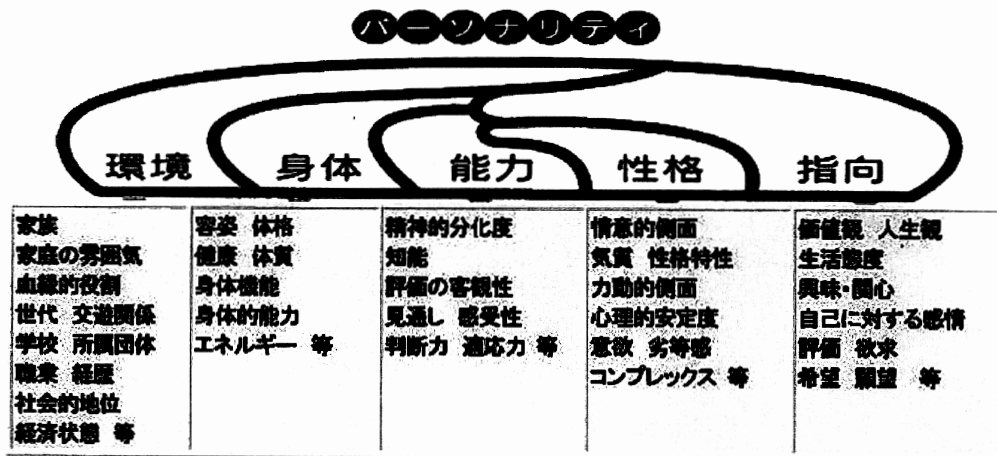 パーソナリティ
環境
身体
能力
性格
指向
家族
家庭の雰囲気
血縁的役割
世代 交遊関係
学校 所属団体
職業 経歴
社会的地位
経済状態 等
容姿 体格
健康 体質
身体機能
身体的能力
エネルギー 等
精神的分化度
知能
評価の客観性
見通し 感受性
判断力 適応力 等
情意的側面
気質 性格特性
力動的側面
心理的安定度
意欲 劣等感
コンプレックス 等
価値観 人生観
生活態度
興味・関心
自己に対する感情
評価 欲求
希望 願望 等